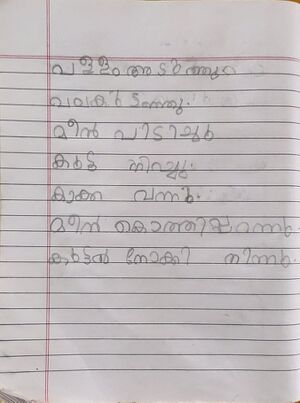 വള്ളം അടുത്തു
വലകൾ ടഞ്ഞു.
മീൻ പിടിച്ചു
കുട്ട നിറച്ചു.
കാക്ക വന്നു.
മീൻ കൊത്തി പറന്നു.
കുട്ടൻ നോക്കി നിന്നു.